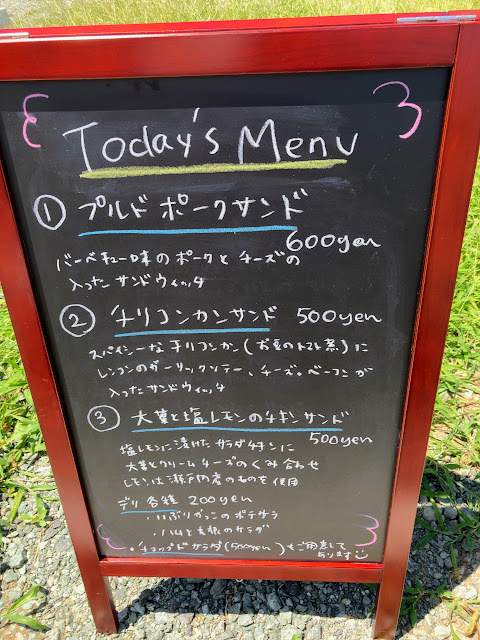 Today's Menu
① プルドポークサンド
600yen
バーベキュー味のポークとチーズの
入ったサンドウィッチ
② チリコンカンサンド 500yen
スパイシーなチリコンカン(お豆のトマト煮)に
レンコンのガーリックソテー、チーズ、ベーコンが
入ったサンドウィッチ
③ 大葉と塩レモンのチキンサンド
500yen
塩レモンに漬けたサラダチキンに
大葉とクリームチーズのくみ合わせ
レモンは瀬戸内産のものを使用
デリ各種 200yen
・いぶりがっこのポテサラ
・ハムと大根のサラダ
・チョップドサラダ(500yen)もご用意して
あります